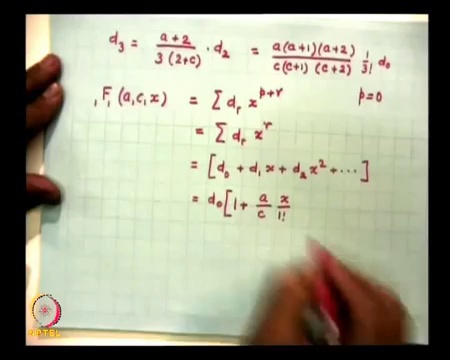 d₃ = a+2 / 3(2+c) · d₂ = a(a+1)(a+2) / c(c+1)(c+2) 1/3! d₀
₁F₁(a,c,x) = Σ dᵣ x^(p+r) p=0
= Σ dᵣ x^r
= [d₀ + d₁x + d₂x² + ···]
= d₀[1 + a/c x/1!
NPTEL